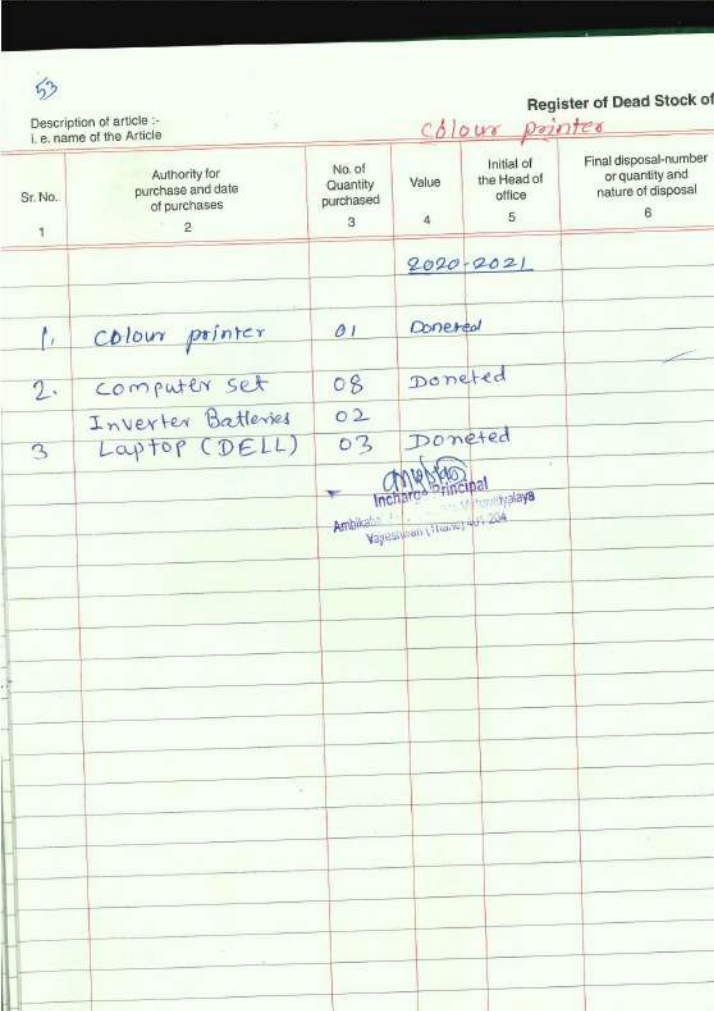 53
Register of Dead Stock of
Description of article :-
i. e. name of the Article
Colour printer
Sr. No. Authority for purchase and date of purchases No. of Quantity purchased Value Initial of the Head of office Final disposal-number or quantity and nature of disposal
1 2 3 4 5 6
2020-2021
1. Colour printer 01 Doneted
2. Computer set 08 Doneted
Inverter Batteries 02
3 Laptop (DELL) 03 Doneted
Incharge Principal
401 204